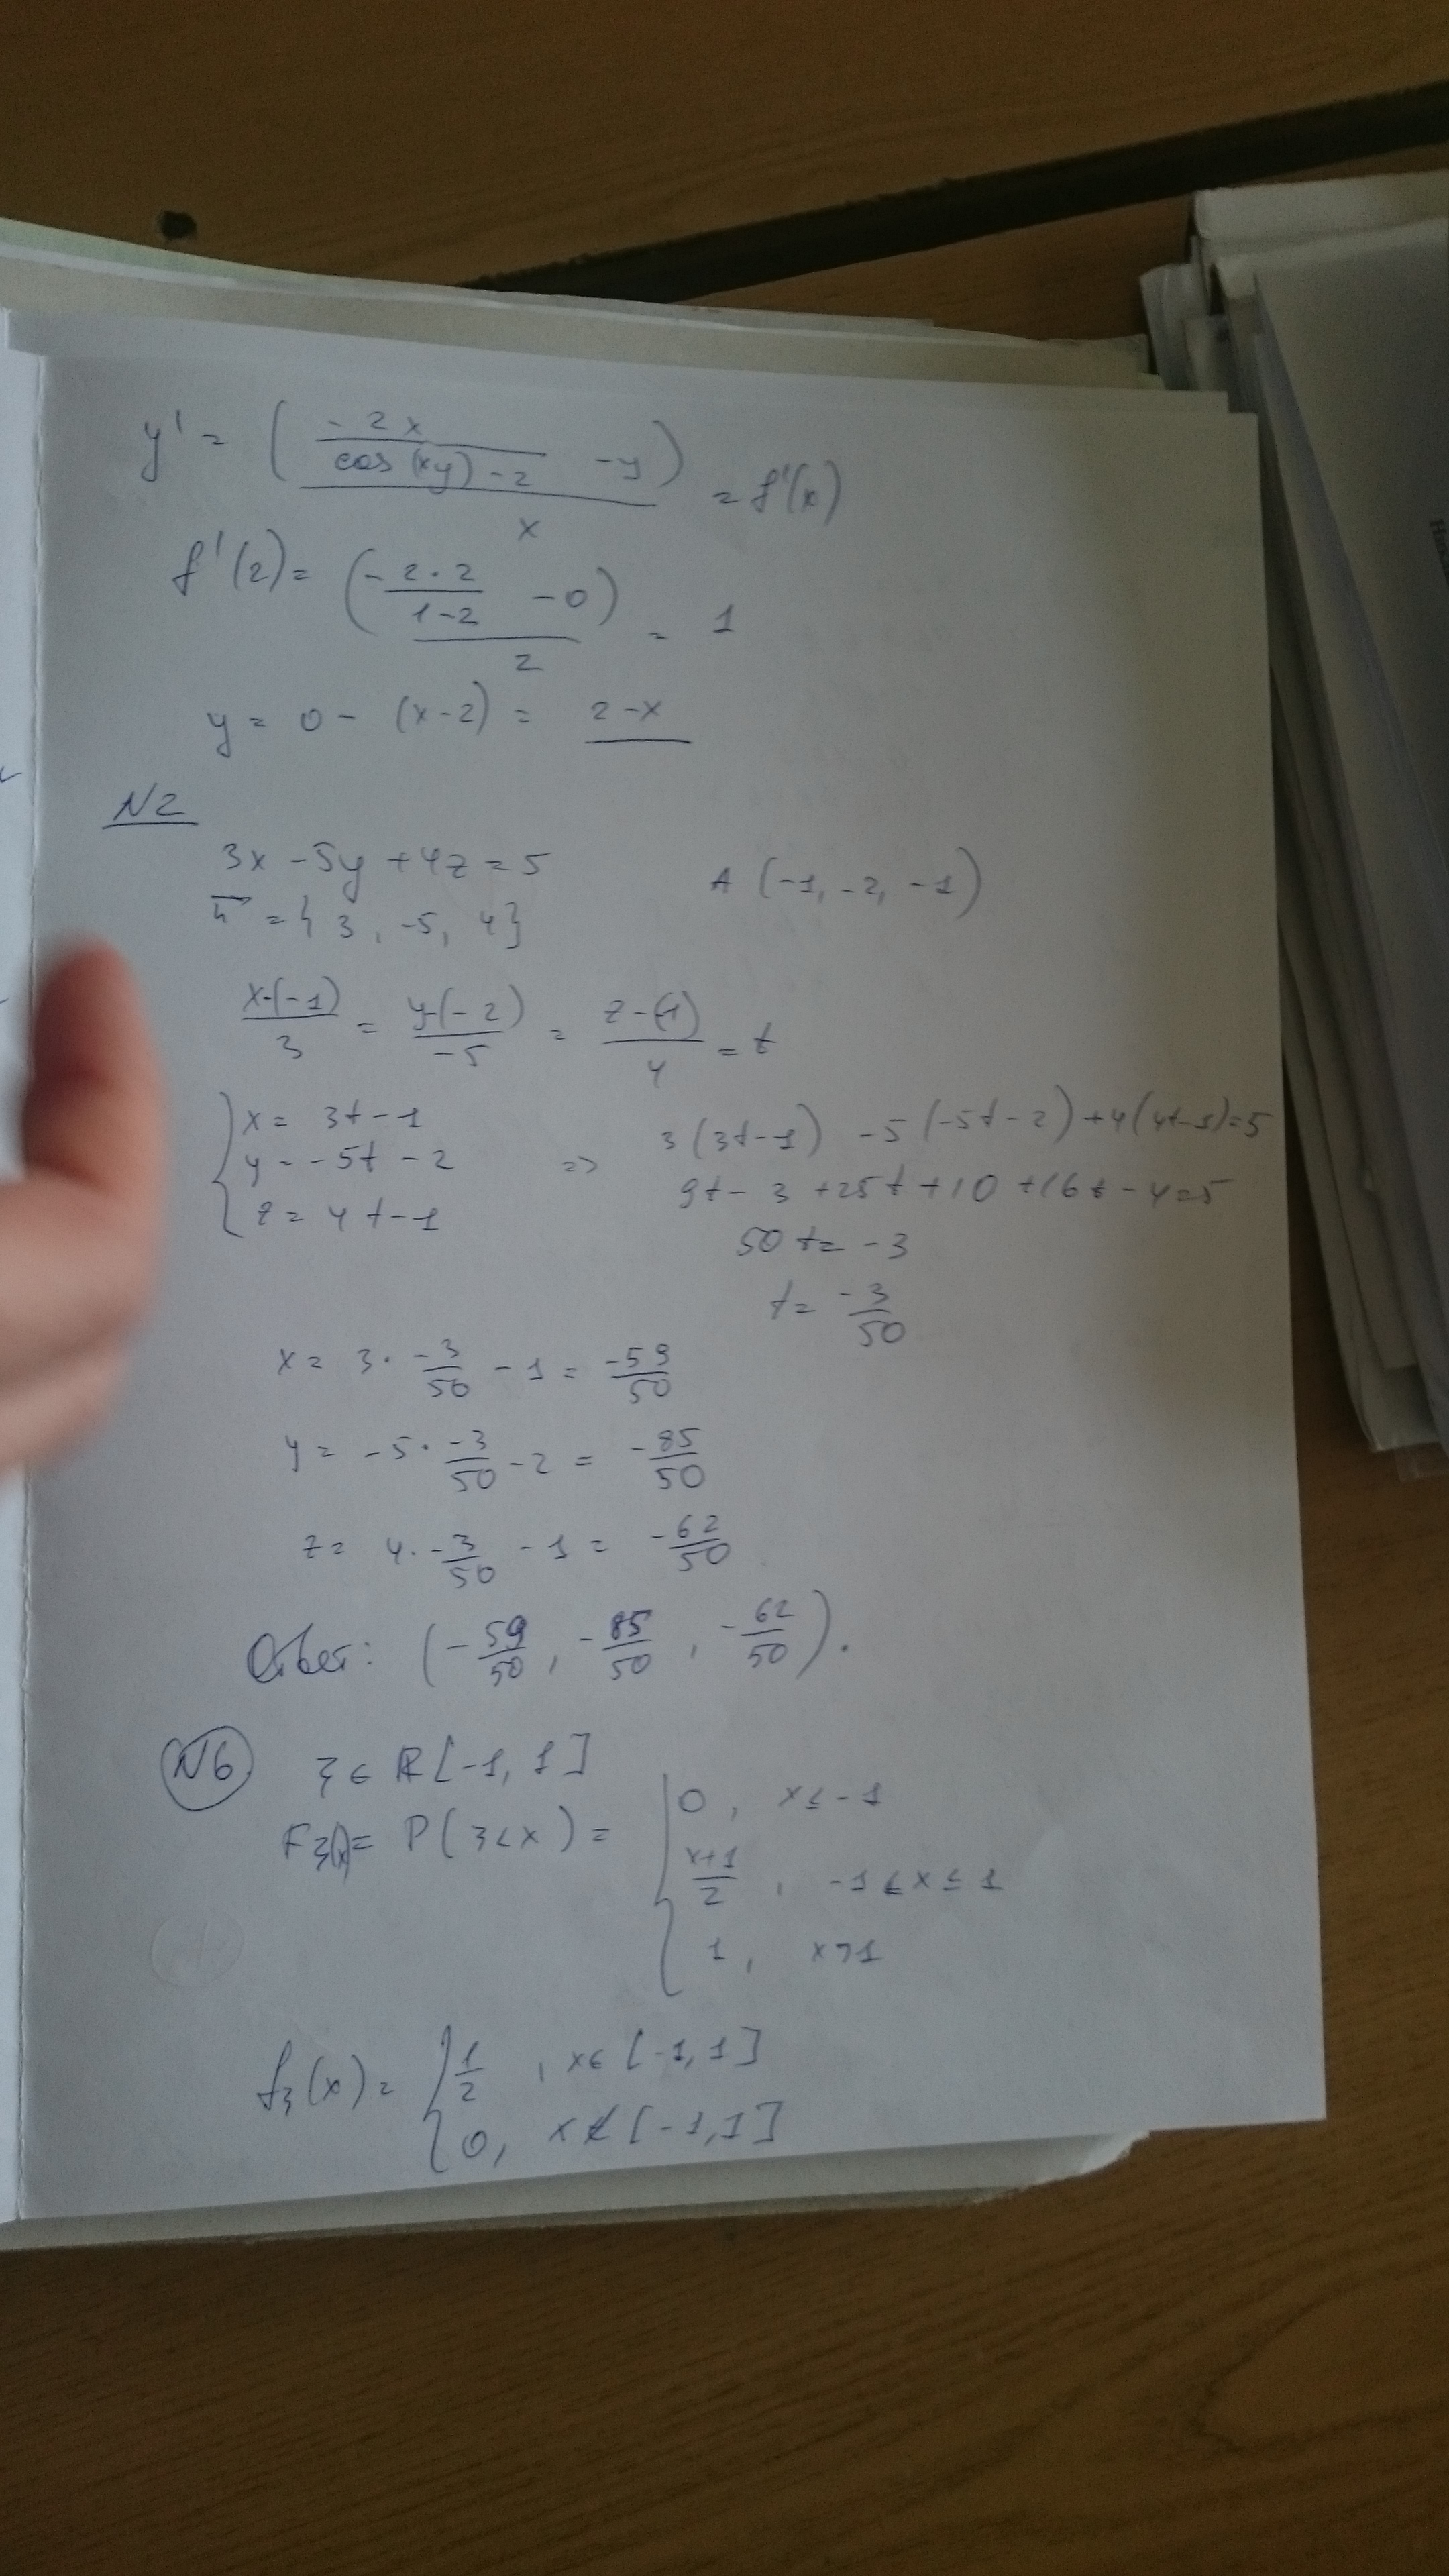 y' = (-2x / (cos(xy) - 2) - y) / x = f'(x)
f'(2) = (-2·2 / (1-2) - 0) / 2 = 1
y = 0 - (x-2) = 2-x
N2
3x - 5y + 4z = 5 A (-1, -2, -1)
n = {3, -5, 4}
(x-(-1))/3 = (y-(-2))/-5 = (z-(-1))/4 = t
{ x = 3t - 1
y = -5t - 2 => 3(3t-1) -5(-5t-2) + 4(4t-1) = 5
z = 4t - 1 9t - 3 + 25t + 10 + 16t - 4 = 5
50t = -3
t = -3/50
x = 3 · -3/50 - 1 = -59/50
y = -5 · -3/50 - 2 = -85/50
z = 4 · -3/50 - 1 = -62/50
Ответ: (-59/50, -85/50, -62/50).
N6 ξ ∈ R[-1, 1]
Fξ(x) = P(ξ < x) = { 0, x ≤ -1
(x+1)/2, -1 < x ≤ 1
1, x > 1
fξ(x) = { 1/2, x ∈ [-1, 1]
0, x ∉ [-1, 1]